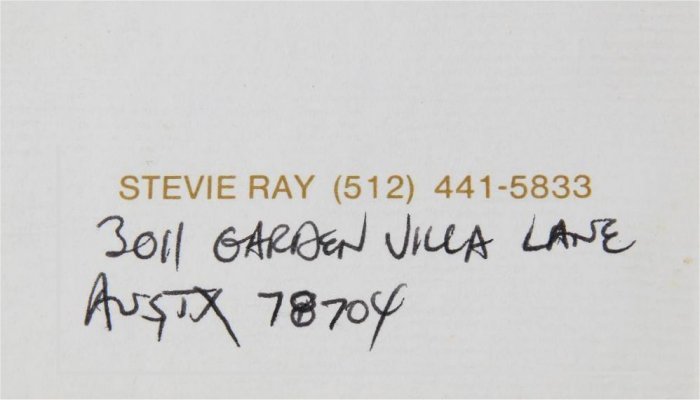 STEVIE RAY (512) 441-5833
3011 GARDEN VILLA LANE
AUSTX 78704